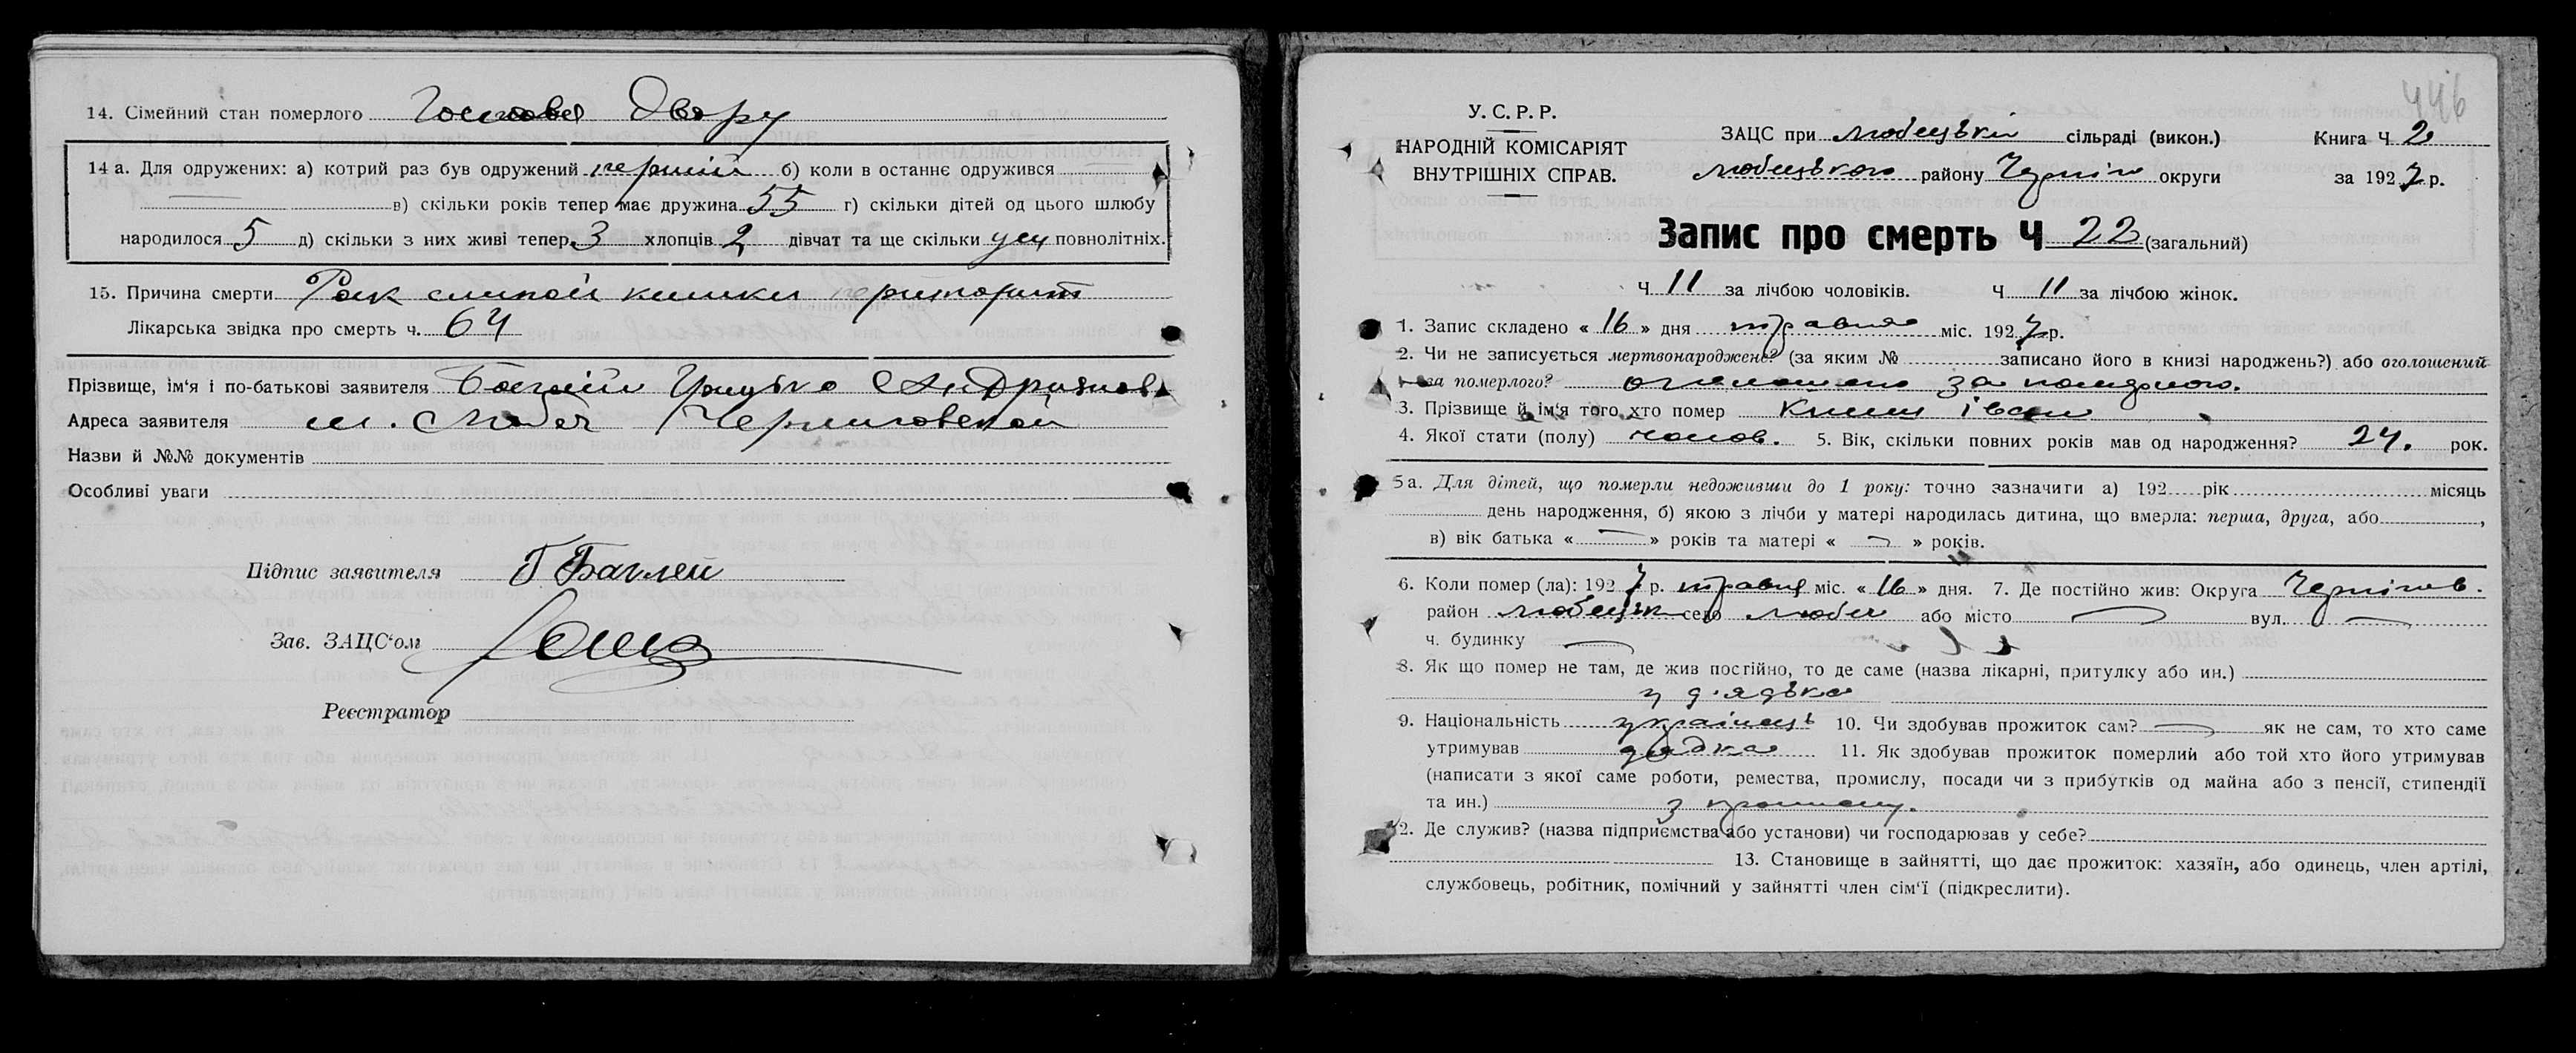 14. Сімейний стан померлого Голова Двору
14 а. Для одружених: а) котрий раз був одружений первий б) коли в останнє одружився
в) скільки років тепер має дружина 55 г) скільки дітей од цього шлюбу
народилося 5 д) скільки з них живі тепер 3 хлопців 2 дівчат та ще скільки усі повнолітніх.
15. Причина смерти Рак слипой кишки
Лікарська звідка про смерть ч. 64
Прізвище, ім'я і по-батькові заявителя
Адреса заявителя м. Любеч
Назви й №№ документів
Особливі уваги
Підпис заявителя Г Баглей
Зав. ЗАЦС'ом
Реєстратор
446
У. С. Р. Р.
НАРОДНІЙ КОМІСАРІЯТ
ВНУТРІШНІХ СПРАВ.
ЗАЦС при Любецькій сільраді (викон.) Книга Ч 2
Любецького району Черніг округи за 1927 р.
Запис про смерть Ч 22 (загальний)
Ч 11 за лічбою чоловіків. Ч 11 за лічбою жінок.
1. Запис складено « 16 » дня травня міс. 1927 р.
2. Чи не записується мертвонароджене? (за яким № записано його в книзі народжень?) або оголошений
за померлого? оголошено за померлого.
3. Прізвище й ім'я того хто помер Книш Іван
4. Якої стати (полу) чолов. 5. Вік, скільки повних років мав од народження? 24. рок.
5а. Для дітей, що померли недоживши до 1 року: точно зазначити а) 192 рік місяць
день народження, б) якою з лічби у матері народилась дитина, що вмерла: перша, друга, або ,
в) вік батька « — » років та матері « — » років.
6. Коли помер (ла): 1927 р. травня міс. « 16 » дня. 7. Де постійно жив: Округа Чернігов.
район Любецьк село Любеч або місто — вул. —
ч. будинку —
8. Як що помер не там, де жив постійно, то де саме (назва лікарні, притулку або ин.)
у дядька
9. Національність українець 10. Чи здобував прожиток сам? — як не сам, то хто саме
утримував дядько 11. Як здобував прожиток померлий або той хто його утримував
(написати з якої саме роботи, ремества, промислу, посади чи з прибутків од майна або з пенсії, стипендії
та ин.) з промислу.
12. Де служив? (назва підприємства або установи) чи господарював у себе?
13. Становище в зайнятті, що дає прожиток: хазяїн, або одинець, член артілі,
службовець, робітник, помічний у зайнятті член сім'ї (підкреслити).